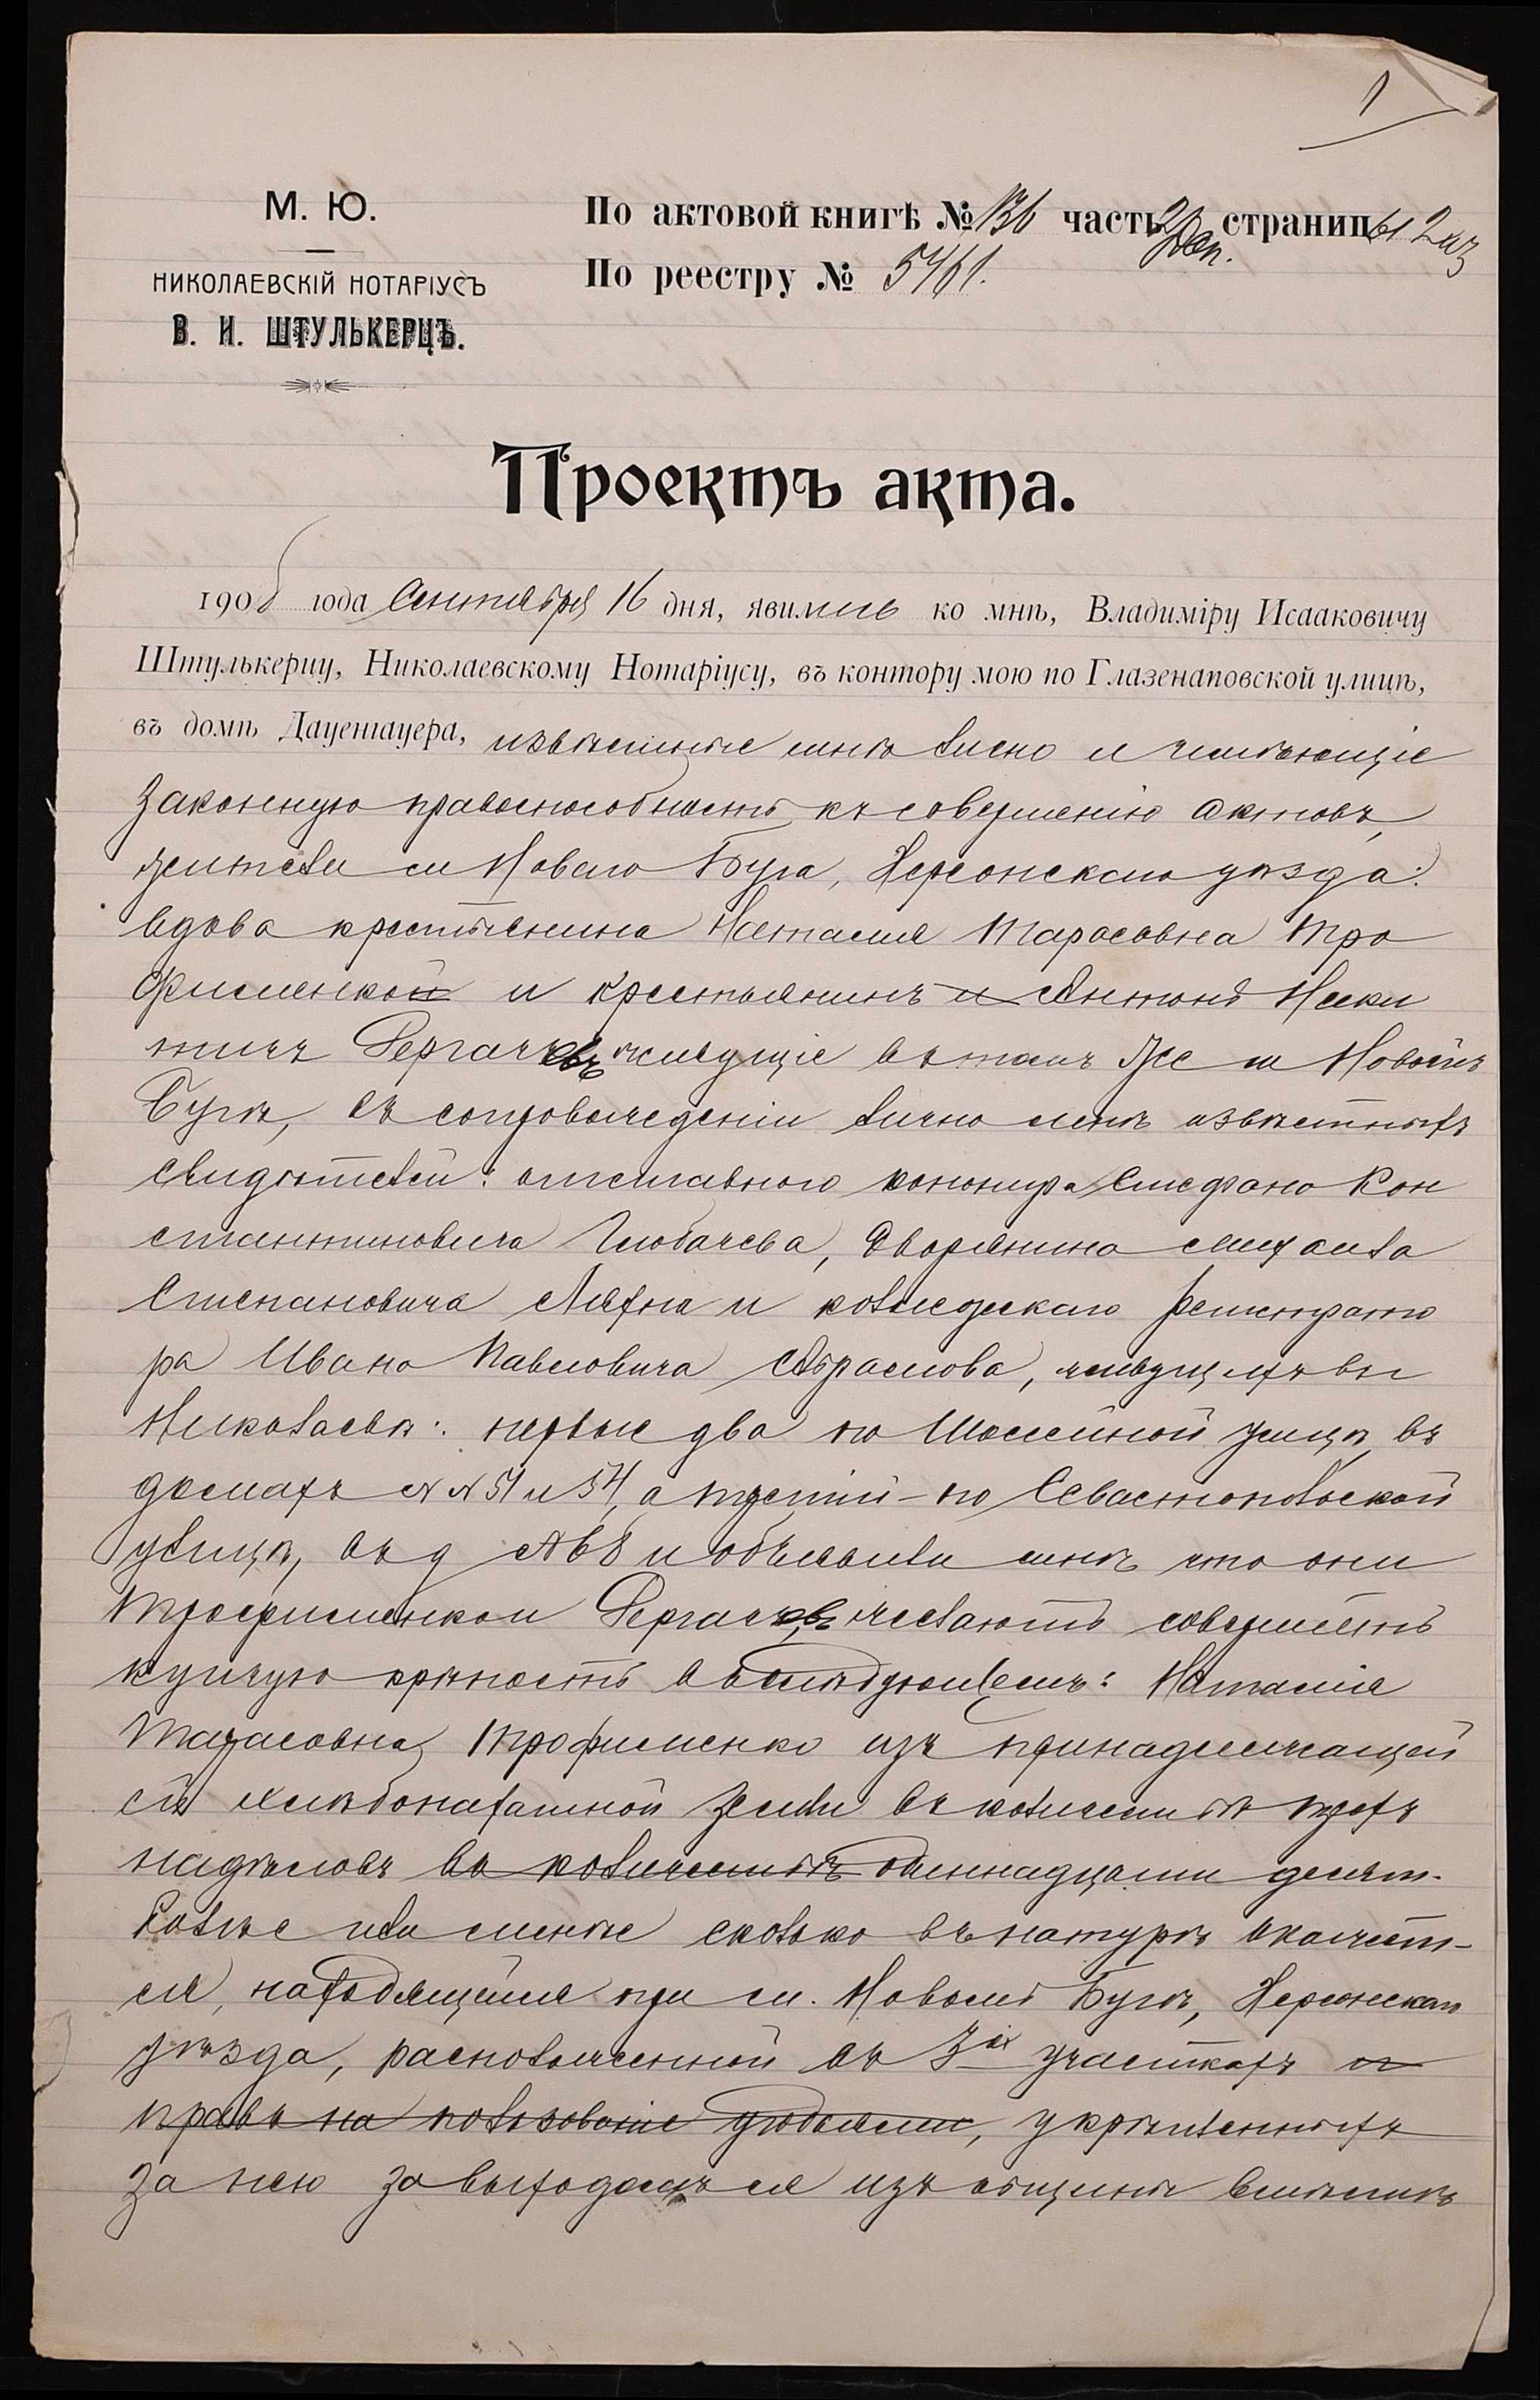 1
М. Ю.
НИКОЛАЕВСКІЙ НОТАРІУСЪ
В. И. ШТУЛЬКЕРЦЪ.
По актовой книгѣ № 136 часть 2 Доп. страницы 2 из
По реестру № 5461.
Проектъ акта.
1908 года Сентября 16 дня, явились ко мнѣ, Владиміру Исааковичу
Штулькерцу, Николаевскому Нотаріусу, въ контору мою по Глазенаповской улицѣ,
въ домѣ Дауенгауера, извѣстные мнѣ лично и имѣющіе
законную правоспособность къ совершенію актовъ,
жители м Новаго Буга, Херсонскаго уѣзда:
вдова крестьянина Наталия Тарасовна Тро
фименкой и крестьянинъ и Антонъ Ники
тичъ Дергачевъ живущіе въ томъ же м Новомъ
Бугѣ, въ сопровожденіи лично мнѣ извѣстныхъ
свидѣтелей: отставного канонира Стефана Кон
стантиновича Глюбачева, дворянина Михаила
Степановича Ляхна и коллежскаго регистрато
ра Ивана Павловича Абрамова, живущихъ въ г
Николаевѣ: первые два по Шоссейной улицѣ, въ
домахъ № № 51 и 54, а третій - по Севастопольской
улицѣ, въ д № 68 и объявили мнѣ что они
Трофименко и Дергачевъ желаютъ совершить
купчую крѣпость въ слѣдующемъ: Наталія
Тарасовна Трофименко изъ принадлежащей
ей хлѣбопахатной земли въ количествѣ трехъ
надѣловъ въ количествѣ одиннадцати десят.
болѣе или менѣе сколько въ натурѣ окажет-
ся, находящейся при м. Новомъ Бугѣ, Херсонскаго
уѣзда, расположенной въ 3хъ участкахъ и
правъ на пользованіе угодьями, укрѣпленныхъ
за нею за выходомъ ея изъ общины